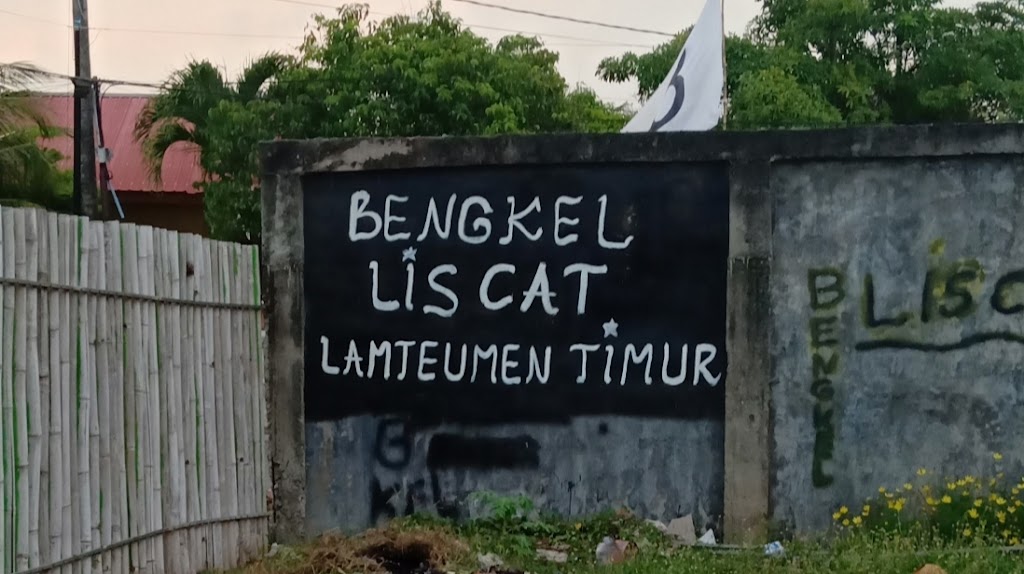 BENGKEL
LISCAT
LAMTEUMEN TIMUR
BENGKEL
LISC
3
G